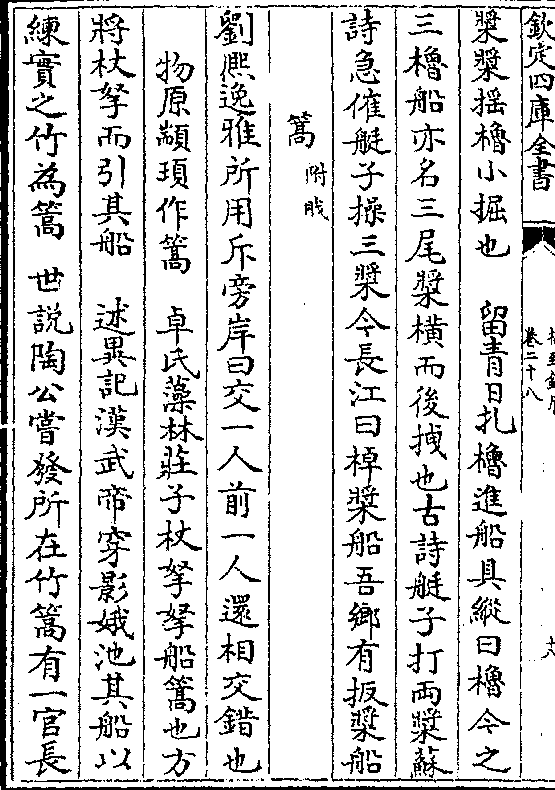 欽定四庫全書
卷二十八
槳槳揺櫓小掘也　留青日扎櫓進船具縱曰櫓今之
三櫓船亦名三尾槳横而後拽也古詩艇子打兩槳蘇
詩急催艇子操三槳今長江曰棹槳船吾鄉有扳槳船
篙附䑨
劉熈逸雅所用斥旁岸曰交一人前一人還相交錯也
物原顓頊作篙　卓氏藻林莊子杖挐挐船篙也方
將杖挐而引其船　述異記漢武帝穿影娥池其船以
練實之竹為篙　世説陶公嘗發所在竹篙有一官長